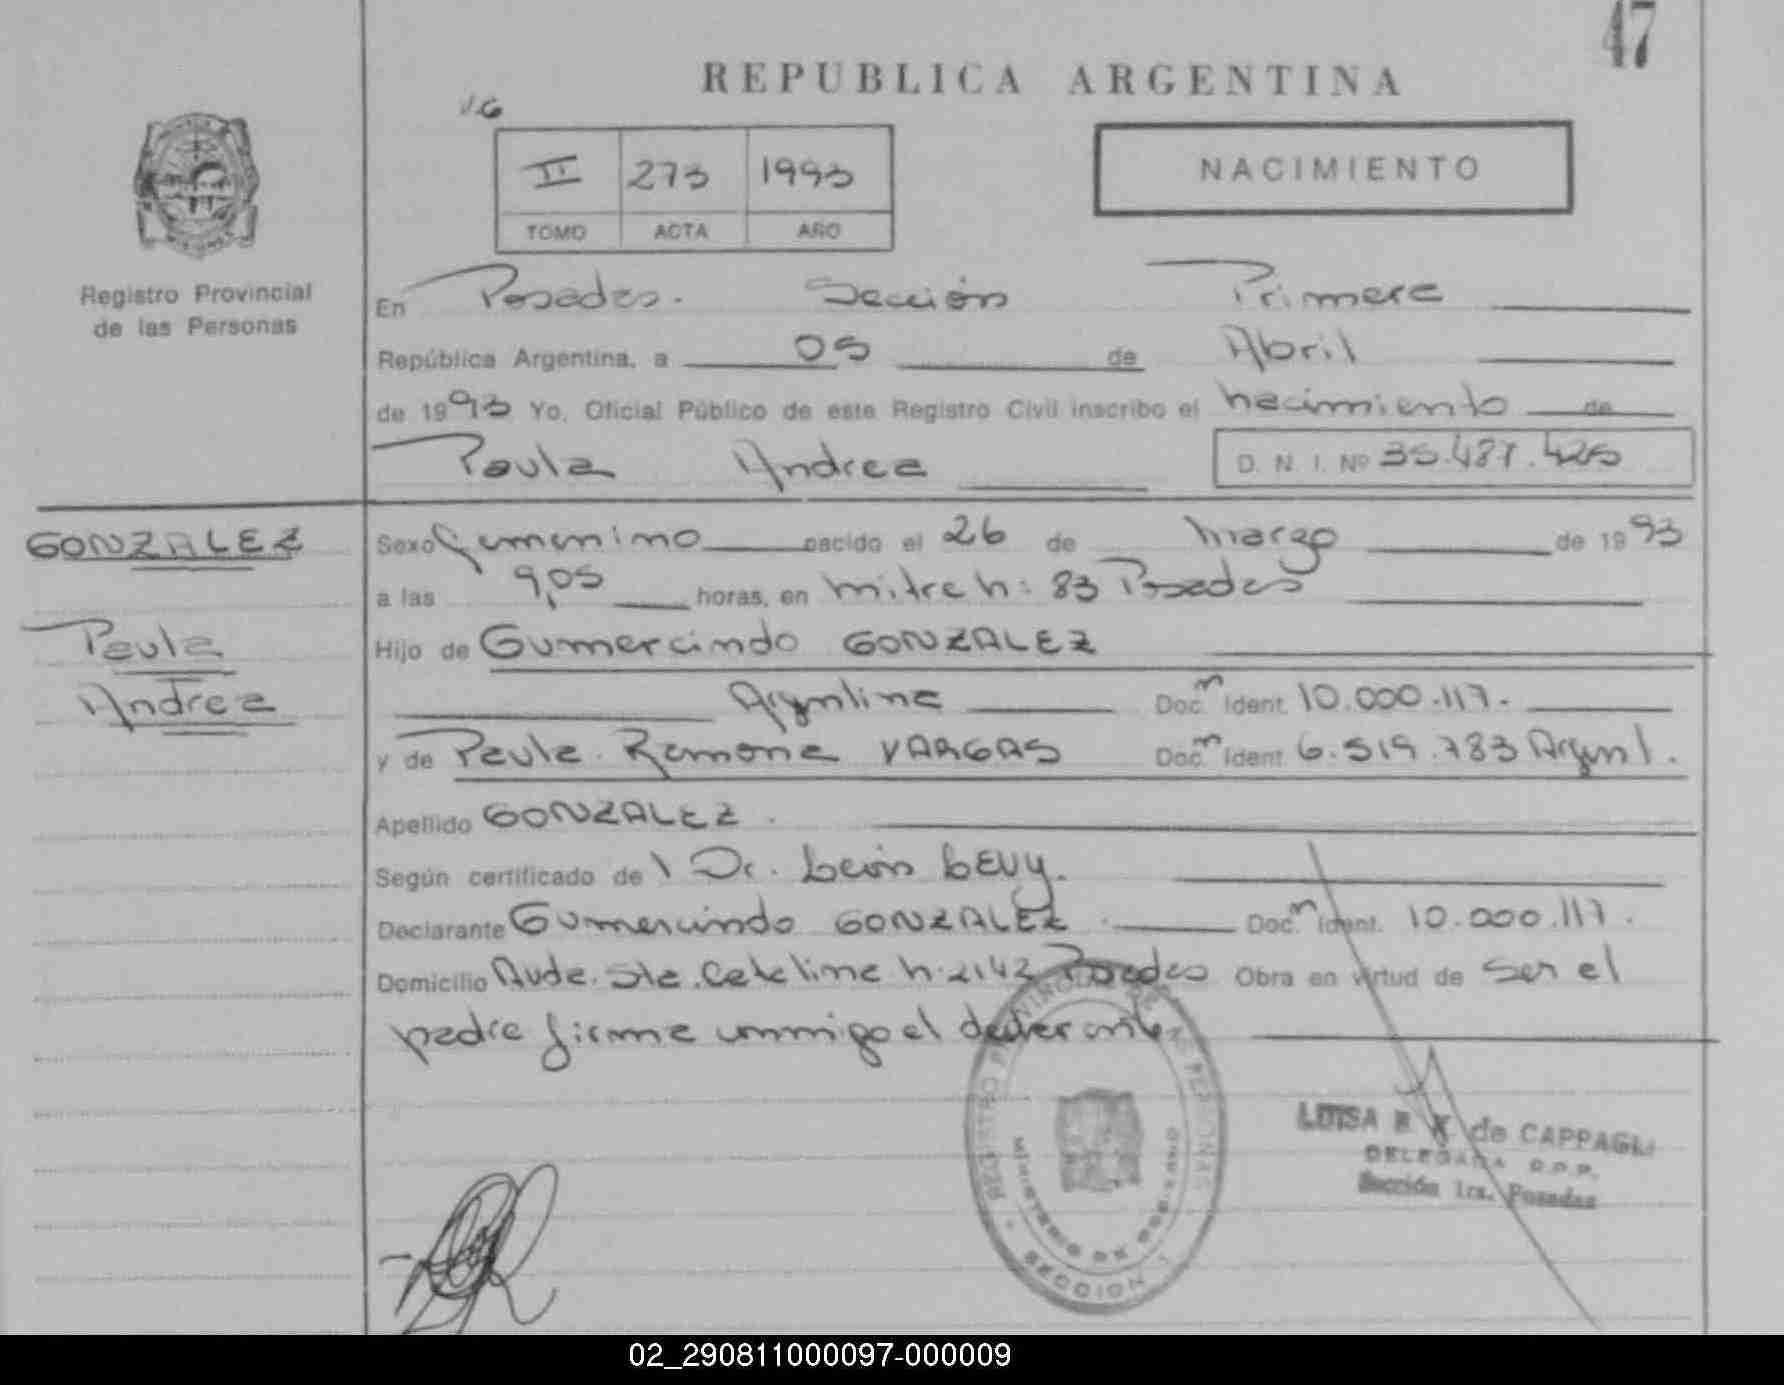 47
REPUBLICA ARGENTINA
V.G
II 273 1993
TOMO ACTA AÑO
NACIMIENTO
Registro Provincial
de las Personas
En Posadas. Sección Primera
República Argentina, a 05 de Abril
de 1993 Yo, Oficial Público de este Registro Civil inscribo el nacimiento de
Paula Andrea D. N. I. Nº 35.487.425
GONZALEZ
Paula
Andrea
Sexo femenino nacido el 26 de marzo de 1993
a las 9,05 horas, en mitre n: 83 Posadas
Hijo de Gumercindo GONZALEZ
Argentina Doc. Ident. 10.000.117.
y de Paula Ramona VARGAS Doc. Ident. 6.519.783 Argent.
Apellido GONZALEZ.
Según certificado del Dr. León LEVY.
Declarante Gumercindo GONZALEZ Doc. Ident. 10.000.117.
Domicilio Avda. Sta. Catalina n. 2142 Posadas Obra en virtud de ser el
padre firma conmigo el declarante
REGISTRO PROVINCIAL DE LAS PERSONAS
MINISTERIO DE GOBIERNO
SECCION 1
LUISA de CAPPAGLI
DELEGADA
Sección 1ra. Posadas
02_290811000097-000009